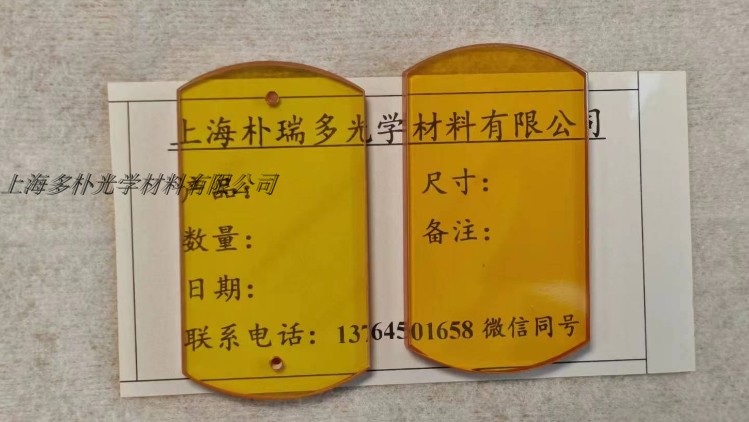 上海朴瑞多光学材料有限公司
上海多朴光学材料有限公司
品: 尺寸:
数量: 备注:
日期:
联系电话: 13764501658 微信同号